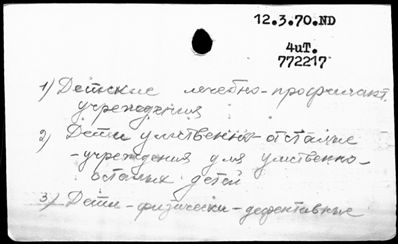 12.3.70.ND
4иТ.
772217
1) Детские лечебно-профилакт.
учреждения
2) Дети умственно-отсталые
- учреждения для умственно-
отсталых детей
3) Дети - физически - дефективные